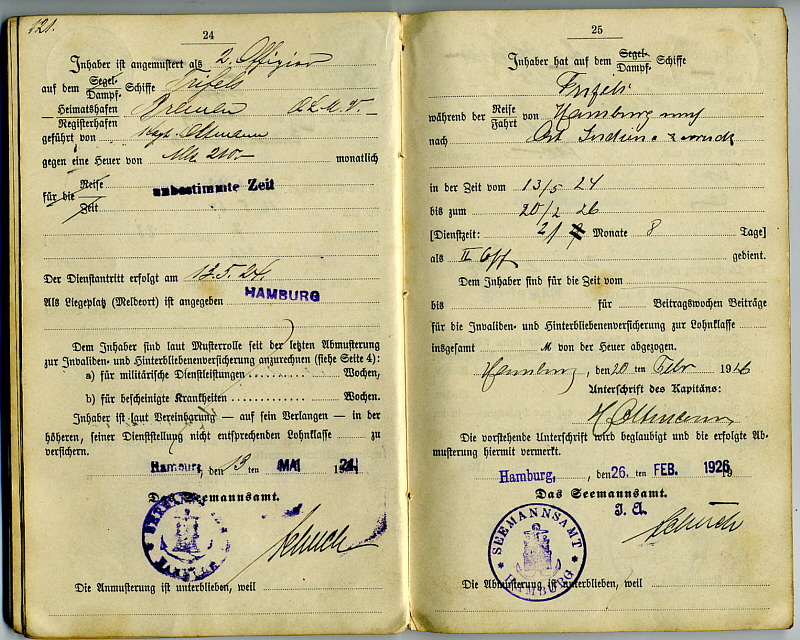 121.
24
Inhaber ist angemustert als 2. Offizier
auf dem Segel- Dampf- Schiffe Trifels
Heimatshafen Registerhafen Bremen
geführt von Kapt. Oltmann
gegen eine Heuer von Mk 210.— monatlich
für die Reise Zeit unbestimmte Zeit
Der Dienstantritt erfolgt am 13.5.24.
Als Liegeplatz (Meldeort) ist angegeben HAMBURG
Dem Inhaber sind laut Musterrolle seit der letzten Abmusterung
zur Invaliden- und Hinterbliebenenversicherung anzurechnen (siehe Seite 4):
a) für militärische Dienstleistungen Wochen,
b) für bescheinigte Krankheiten Wochen.
Inhaber ist laut Vereinbarung — auf sein Verlangen — in der
höheren, seiner Dienststellung nicht entsprechenden Lohnklasse zu
versichern.
Hamburg, den 13 ten MAI 1924
Das Seemannsamt.
Schuch
Die Anmusterung ist unterblieben, weil
25
Inhaber hat auf dem Segel- Dampf- Schiffe
Trifels
während der Reise Fahrt von Hamburg nach
nach Ost Indien u. zurück
in der Zeit vom 13/5 24
bis zum 20/2 26
[Dienstzeit: 21 Monate 8 Tage]
als II Off gedient.
Dem Inhaber sind für die Zeit vom
bis für Beitragswochen Beiträge
für die Invaliden- und Hinterbliebenenversicherung zur Lohnklasse
insgesamt M von der Heuer abgezogen.
Hamburg, den 20 ten Febr 1926
Unterschrift des Kapitäns:
H Oltmann
Die vorstehende Unterschrift wird beglaubigt und die erfolgte Ab-
musterung hiermit vermerkt.
Hamburg, den 26. ten FEB. 1926 19
Das Seemannsamt.
J. A.
Schuch
SEEMANNSAMT HAMBURG
Die Abmusterung ist unterblieben, weil